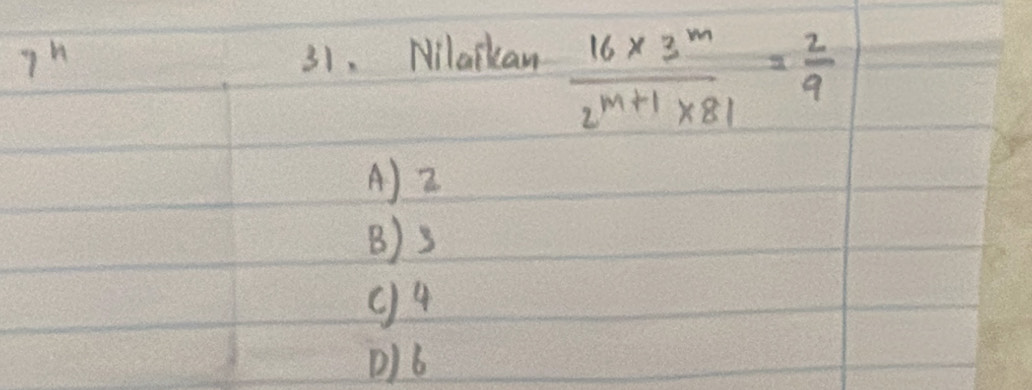 7ⁿ
31. Nilaikan \frac{16 × 3^m}{2^{m+1} × 81} = \frac{2}{9}
A) 2
B) 3
C) 4
D) 6